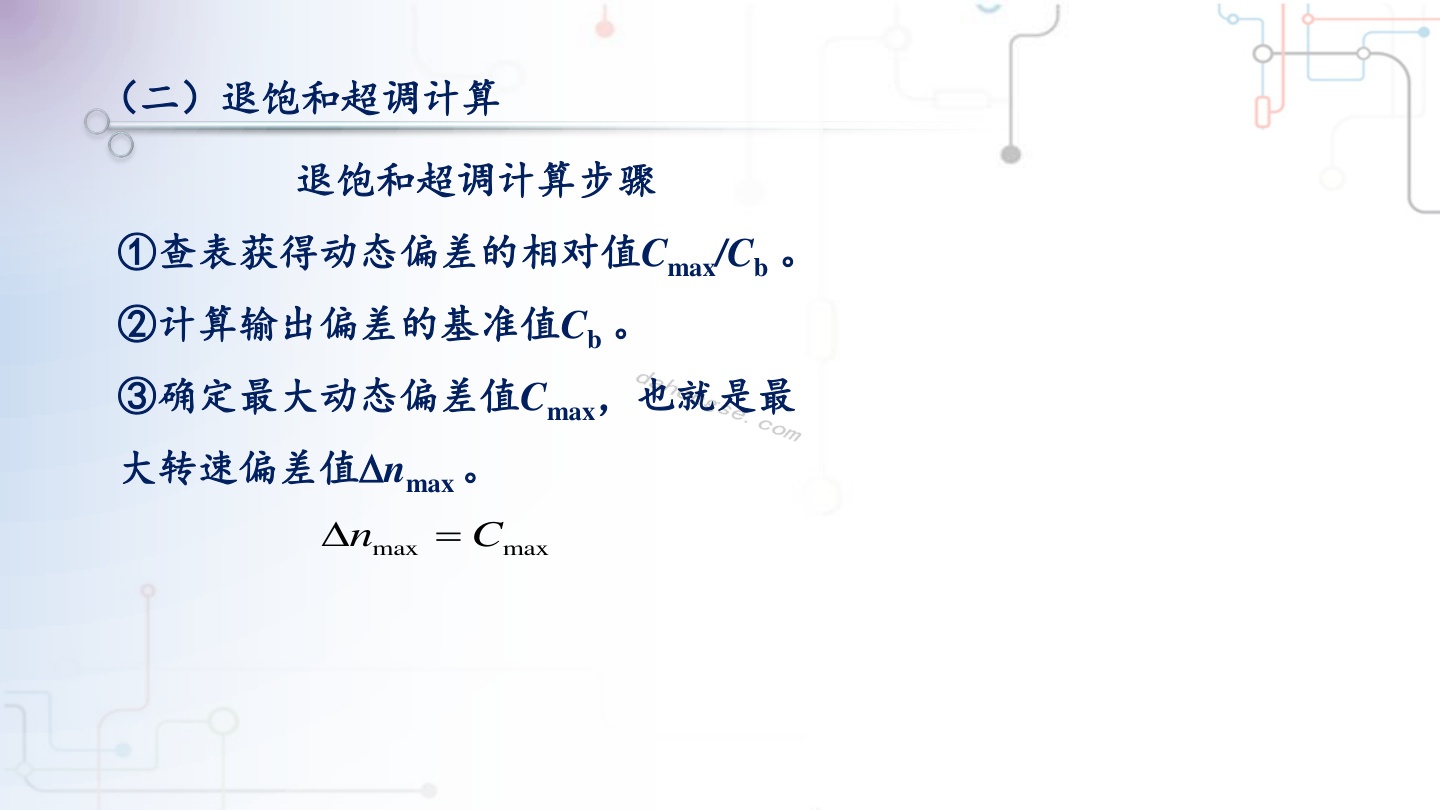 （二）退饱和超调计算
退饱和超调计算步骤
①查表获得动态偏差的相对值Cmax/Cb 。
②计算输出偏差的基准值Cb 。
③确定最大动态偏差值Cmax，也就是最
大转速偏差值Δnmax 。
Δnmax = Cmax